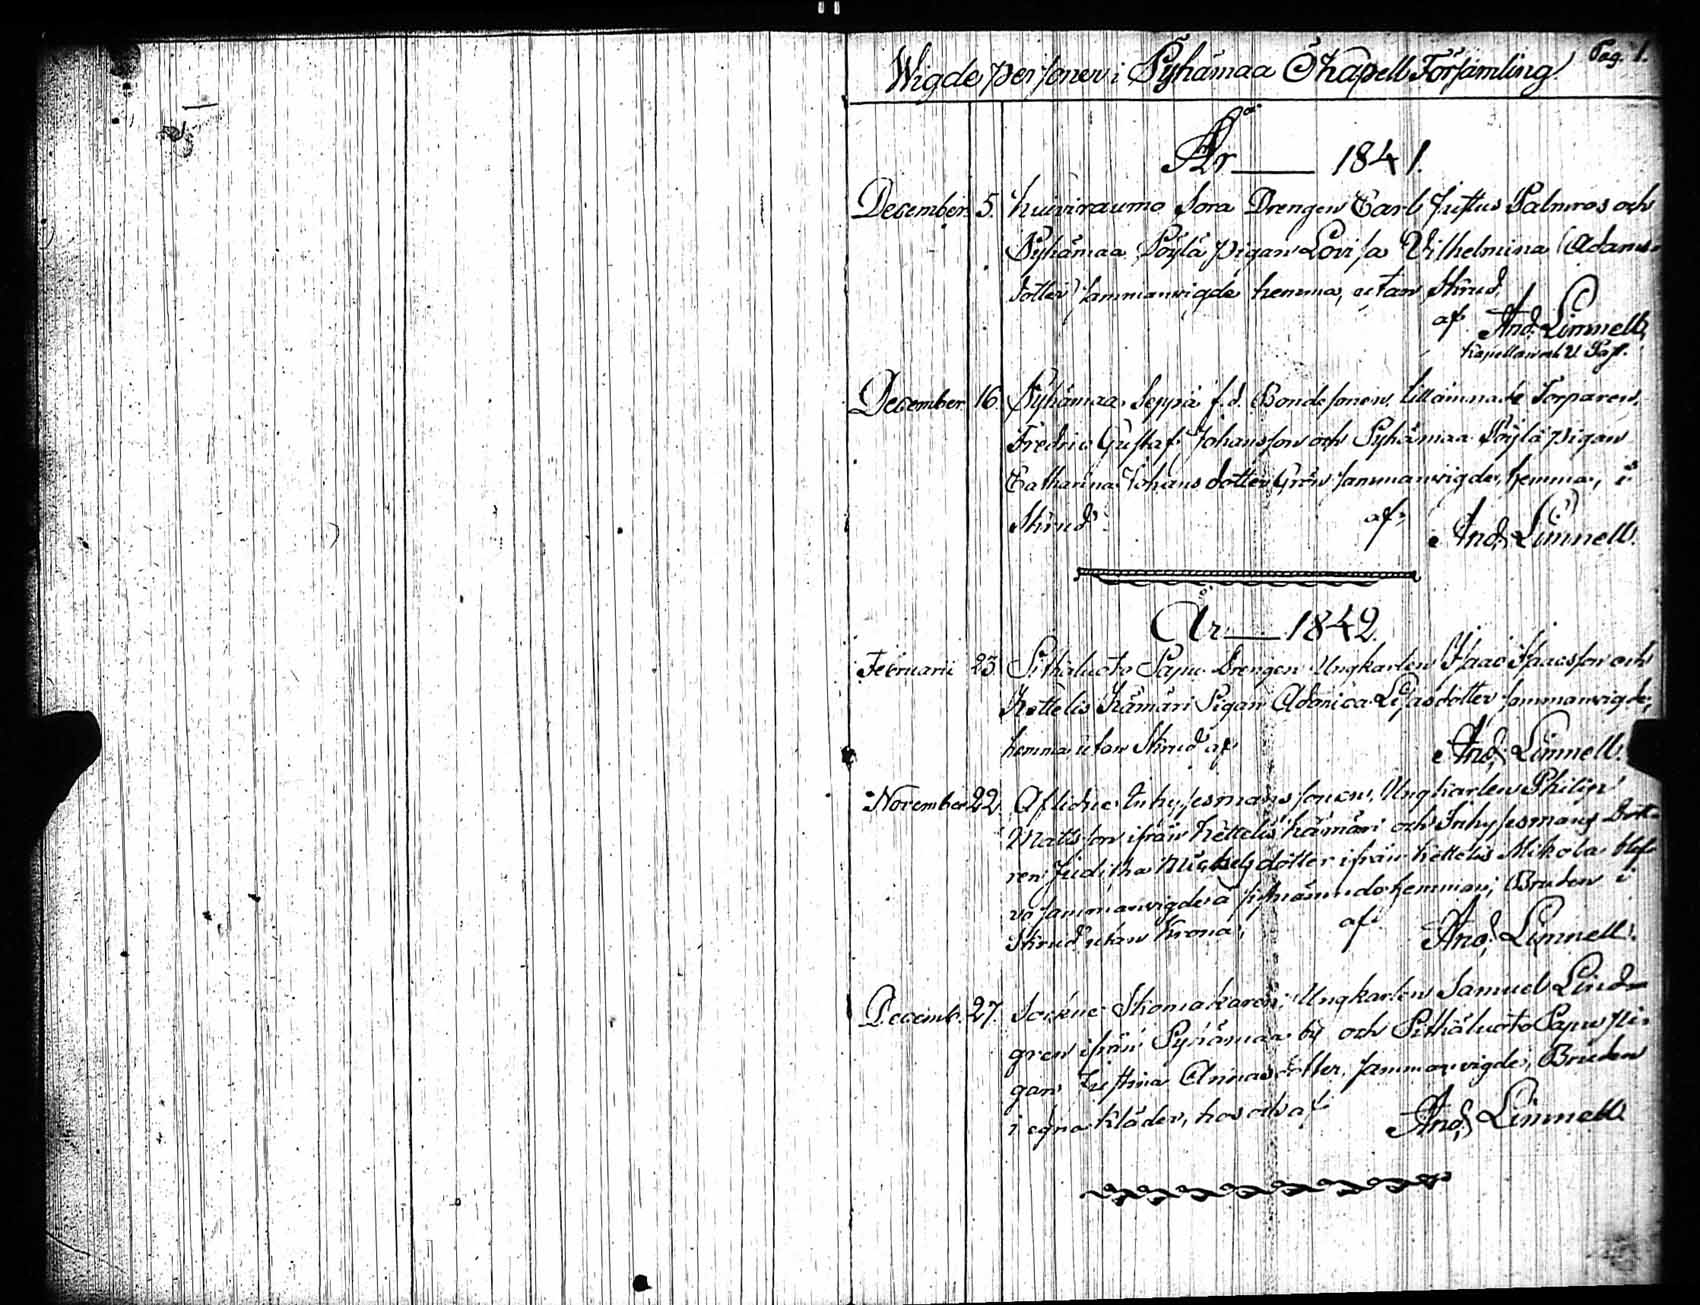 Pag. 1.
Wigde personer i Pyhämaa Kapell Församling
År 1841.
December 5. Kuiviraumo Sora Drengen Carl Justus Palmros och
Pyhämaa Pöylä pigan Lovisa Vilhelmina (Adams-
dotter) sammanvigde hemma, utan Skrud,
af And. Limnell,
Kapellan och V. Past.
December 16. Pyhämaa Seppä f.d. Bondesonen, tillämnade Torparen,
Fredric Gustaf Johansson och Pyhämaa Pöylä pigan
Catharina Johansdotter Grön sammanvigde, hemma, i
Skrud af And. Limnell.
År 1842.
Februarii 23. Pitkäluoto Papu Drengen Ungkarlen Isaac Isaacsson och
Kettelis Kämäri Pigan Adonica Lisasdotter sammanvigde,
hemma utan Skrud af And. Limnell.
November 22. Aflidne Inhysesmans sonen, Ungkarlen Philip
Mattsson ifrån Kettelis Kämäri och Inhysesmans Dott-
ren Juditha Michelsdotter ifrån Kettelis Mikola blef-
vo sammanvigde å sistnämndo hemman; Bruden i
Skrud utan Krona, af And. Limnell.
Decemb. 27. Sockne Skomakaren, Ungkarlen Samuel Lind-
gren ifrån Pyhämaa by och Pitkäluoto Papu pi-
gan Justina Annasdotter, sammanvigde, Bruden
i egna kläder, hos och af And. Limnell